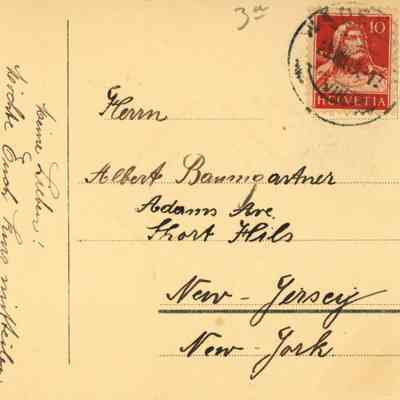 3a
10
HELVETIA
Herrn
Albert Baumgartner
Adams Ave.
Short Hils
New-Jersey
New-York
Meine Lieben!
Möchte Euch kurz mitteilen